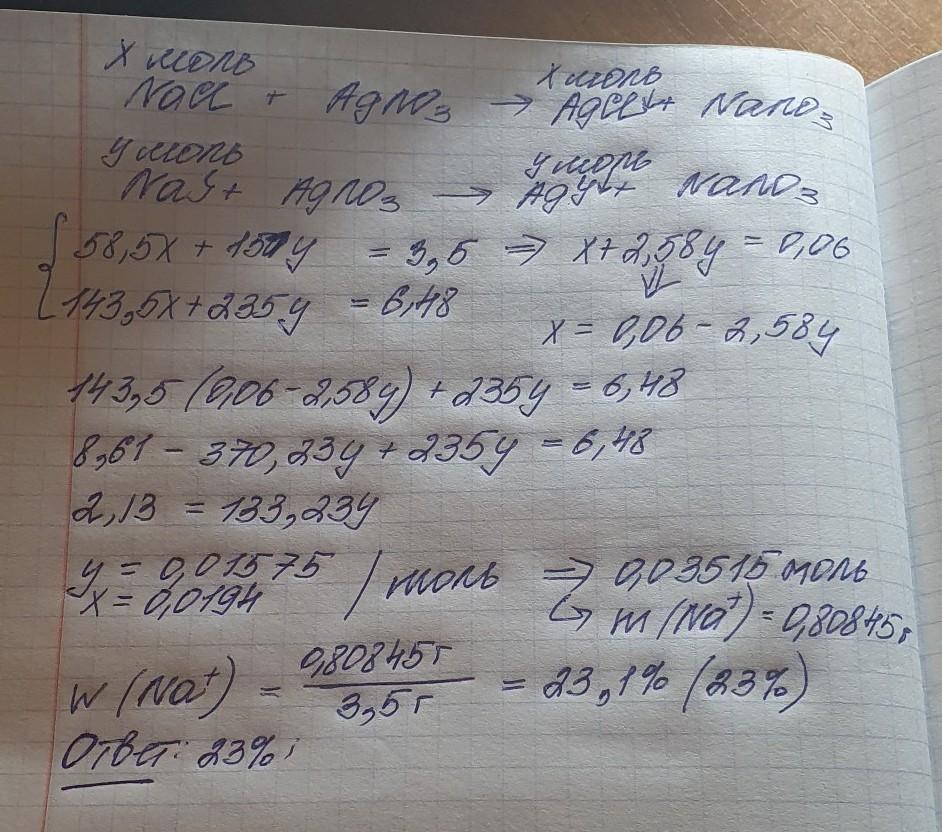 x моль x моль
NaCl + AgNO₃ → AgCl↓ + NaNO₃
y моль y моль
NaI + AgNO₃ → AgI↓ + NaNO₃
{ 58,5x + 151y = 3,5 ⇒ x + 2,58y = 0,06
⇓
143,5x + 235y = 6,48
x = 0,06 - 2,58y
143,5 (0,06 - 2,58y) + 235y = 6,48
8,61 - 370,23y + 235y = 6,48
2,13 = 133,23y
y = 0,01575 / моль ⇒ 0,03515 моль
x = 0,0194 ↪ m (Na⁺) = 0,80845 г
W (Na⁺) = 0,80845 г / 3,5 г = 23,1% (23%)
Ответ: 23%;